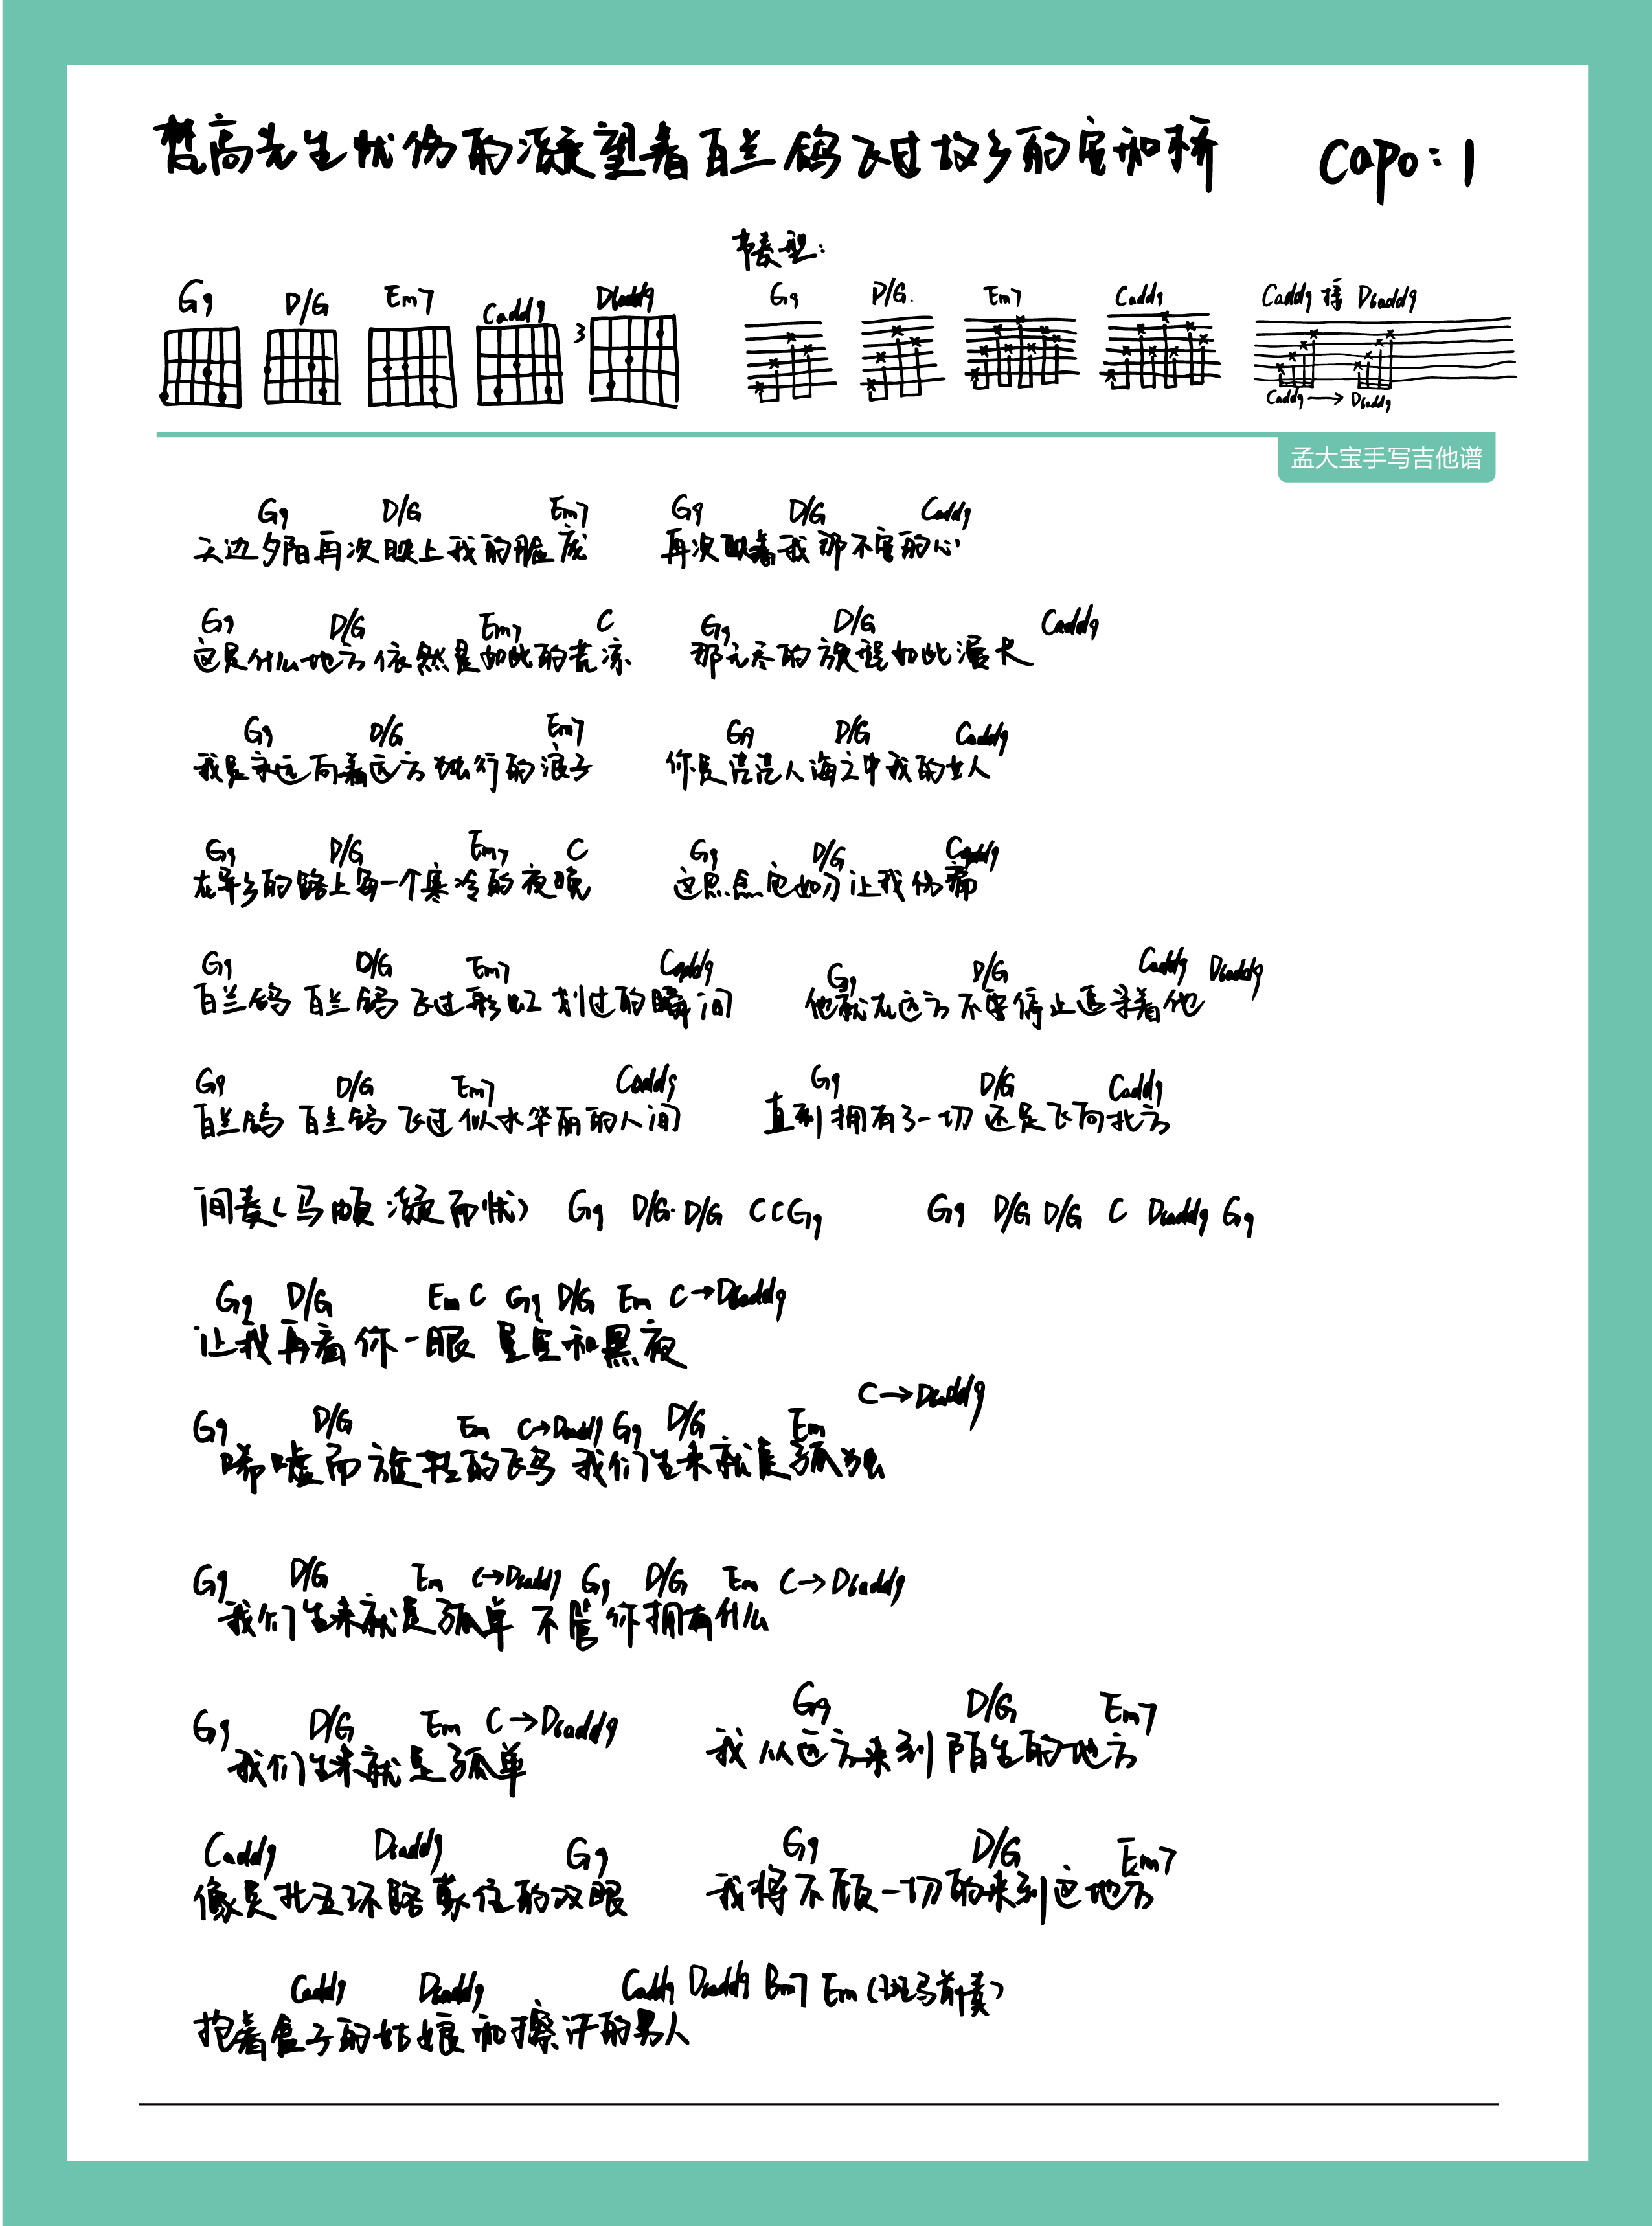 梵高先生忧伤的凝望着百兰鸽飞过故乡的安和桥 Capo:1
节奏型:
G9 D/G Em7 Cadd9 D6add9 G9 D/G. Em7 Cadd9 Cadd9 接 D6add9
3
Cadd9 → D6add9
孟大宝手写吉他谱
G9 D/G Em7 G9 D/G Cadd9
天边夕阳再次映上我的脸庞 再次映着我那不安的心
G9 D/G Em7 C G9 D/G Cadd9
这是什么地方依然是如此的荒凉 那无尽的旅程如此漫长
G9 D/G Em7 G9 D/G Cadd9
我是永远向着远方独行的浪子 你是茫茫人海之中我的女人
G9 D/G Em7 C G9 D/G Cadd9
在异乡的路上每一个寒冷的夜晚 这思念它如刀让我伤痛
G9 D/G Em7 Cadd9 G9 D/G Cadd9 D6add9
百兰鸽 百兰鸽 飞过彩虹划过的瞬间 他就在远方不安停止追寻着他
G9 D/G Em7 Cadd9 G9 D/G Cadd9
百兰鸽 百兰鸽 飞过似水华丽的人间 直到拥有了一切 还是飞向北方
间奏(马頔 凝而忧) G9 D/G· D/G C C G9 G9 D/G D/G C D6add9 G9
G9 D/G Em C G9 D/G Em C→D6add9
让我再看你一眼 星星和黑夜
G9 D/G Em C→D6add9 G9 D/G Em C→D6add9
唏嘘而旋转的飞鸟 我们生来就是孤独
G9 D/G Em C→D6add9 G9 D/G Em C→D6add9
我们生来就是孤单 不管你拥有什么
G9 D/G Em C→D6add9 G9 D/G Em7
我们生来就是孤单 我从远方来到陌生的地方
Cadd9 D6add9 G9 G9 D/G Em7
像是北五环路蒙住的双眼 我将不顾一切的来到这地方
Cadd9 D6add9 Cadd9 D6add9 Bm7 Em (斑马前奏)
抱着盒子的姑娘和擦汗的男人